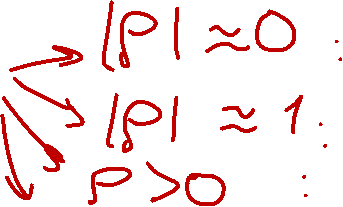 |ρ| ≈ 0 :
|ρ| ≈ 1 :
ρ > 0 :